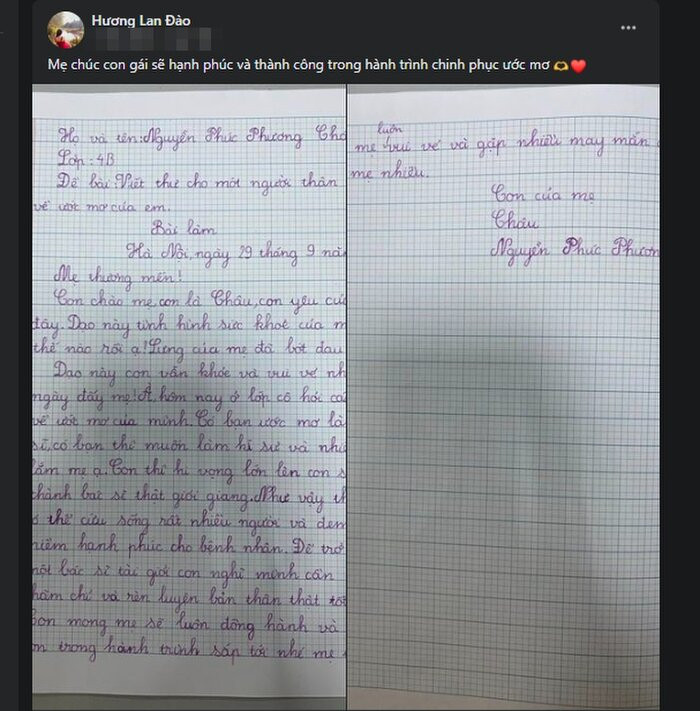 Hương Lan Đào
Mẹ chúc con gái sẽ hạnh phúc và thành công trong hành trình chinh phục ước mơ 🫶❤️
Họ và tên: Nguyễn Phúc Phương Châ
Lớp: 4B
Đề bài: Viết thư cho một người thân
về ước mơ của em.
Bài làm
Hà Nội, ngày 29 tháng 9 nă
Mẹ thương mến!
Con chào mẹ, con là Châu, con yêu của
đây. Dạo này tình hình sức khoẻ của m
thế nào rồi ạ! Lưng của mẹ đã bớt đau
Dạo này con vẫn khỏe và vui vẻ nh
ngày đấy mẹ! À, hôm nay ở lớp cô hỏi cá
về ước mơ của mình. Có bạn ước mơ là
sĩ, có bạn thì muốn làm kĩ sư và nhi
lắm mẹ ạ. Con thì hi vọng lớn lên con s
thành bác sĩ thật giỏi giang. Như vậy th
ó thể cứu sống rất nhiều người và đem
niềm hạnh phúc cho bệnh nhân. Để trở
một bác sĩ tài giỏi con nghĩ mình cần
hăm chỉ và rèn luyện bản thân thật tốt
Con mong mẹ sẽ luôn đồng hành và
n trong hành trình sắp tới nhé mẹ
luôn
mẹ vui vẻ và gặp nhiều may mắn
mẹ nhiều.
Con của mẹ
Châu
Nguyễn Phúc Phươn